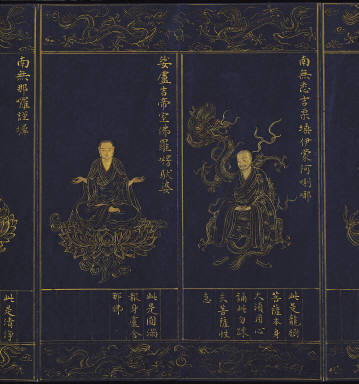 南無悉吉栗埵伊蒙阿唎耶
此是龍樹
菩薩本身
大須用心
誦此勿疎
失菩薩性
急
婆盧吉帝室佛囉楞馱婆
此是圓滿
報身盧舍
那佛
南無那囉謹墀
此是清淨